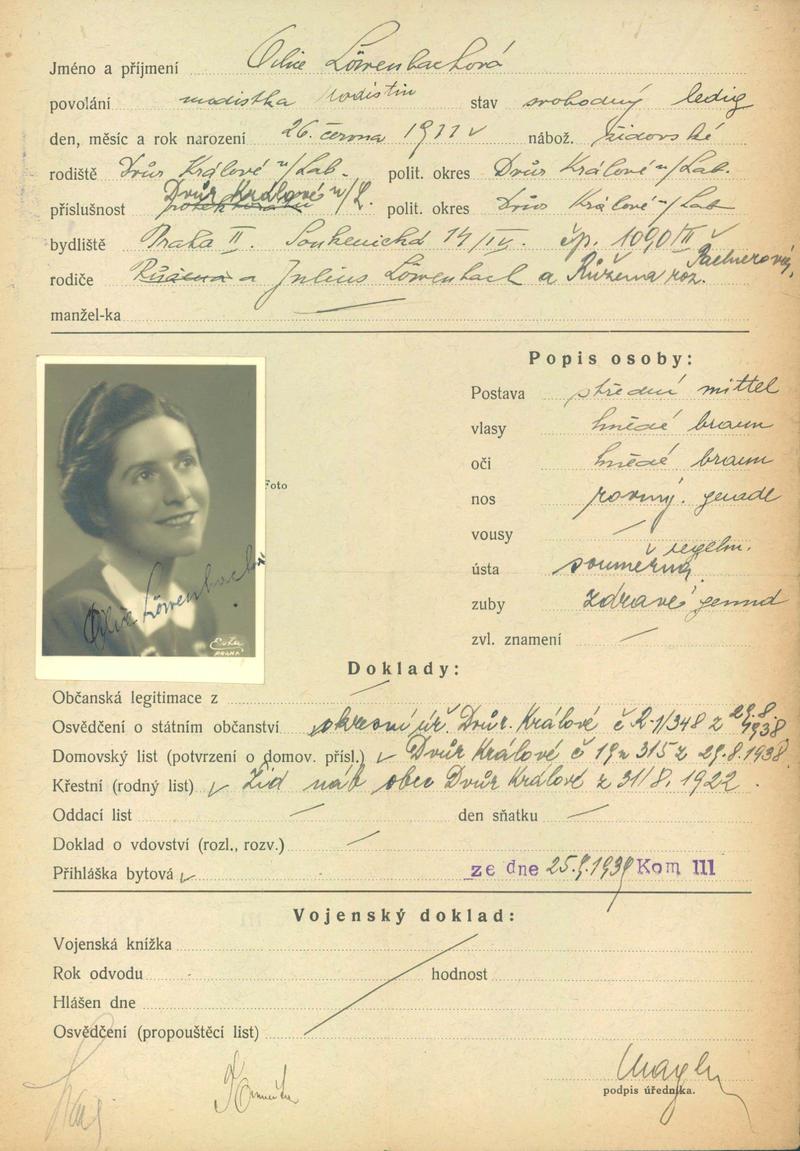 Jméno a příjmení Otilie Löwenbachová
povolání modistka modistin stav svobodný ledig
den, měsíc a rok narození 26. června 1911 nábož. židovské
rodiště Dvůr Králové n/Lab. polit. okres Dvůr Králové n/Lab.
příslušnost Dvůr Králové n/L. polit. okres Dvůr Králové n/Lab
bydliště Praha II. Soukenická 14/IV. čp. 1090/II
rodiče Růžena a Julius Löwenbach a Růžena roz.
manžel-ka
Popis osoby:
Postava střední mittel
vlasy hnědé braun
oči hnědé braun
Foto
nos rovný. gerade
vousy
ústa souměrná regelm.
zuby zdravé gesund
zvl. znamení
Otilie Löwenbachová
PRAHA
Doklady:
Občanská legitimace z
Osvědčení o státním občanství okresní úř. Dvůr. Králové č 2-1/348 z 29.8. 1938
Domovský list (potvrzení o domov. přísl.) Dvůr Králové č 19 315 z 29.8.1938
Křestní (rodný list) Žid náb obec Dvůr Králové z 31/8. 1922.
Oddací list den sňatku
Doklad o vdovství (rozl., rozv.)
Přihláška bytová ze dne 25.9.1939 Kom III
Vojenský doklad:
Vojenská knížka
Rok odvodu hodnost
Hlášen dne
Osvědčení (propouštěcí list)
podpis úředníka.